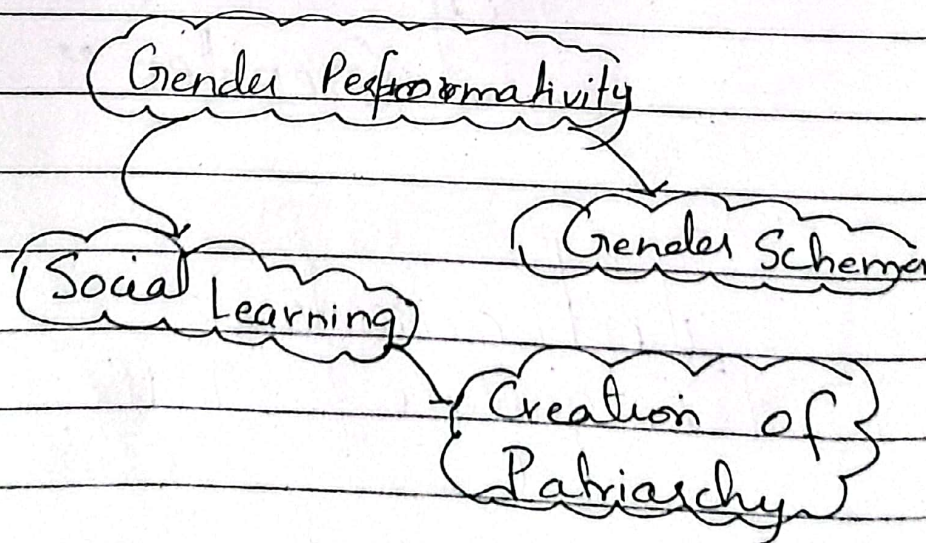 Gender Performativity
Gender Schema
Social Learning
Creation of
Patriarchy